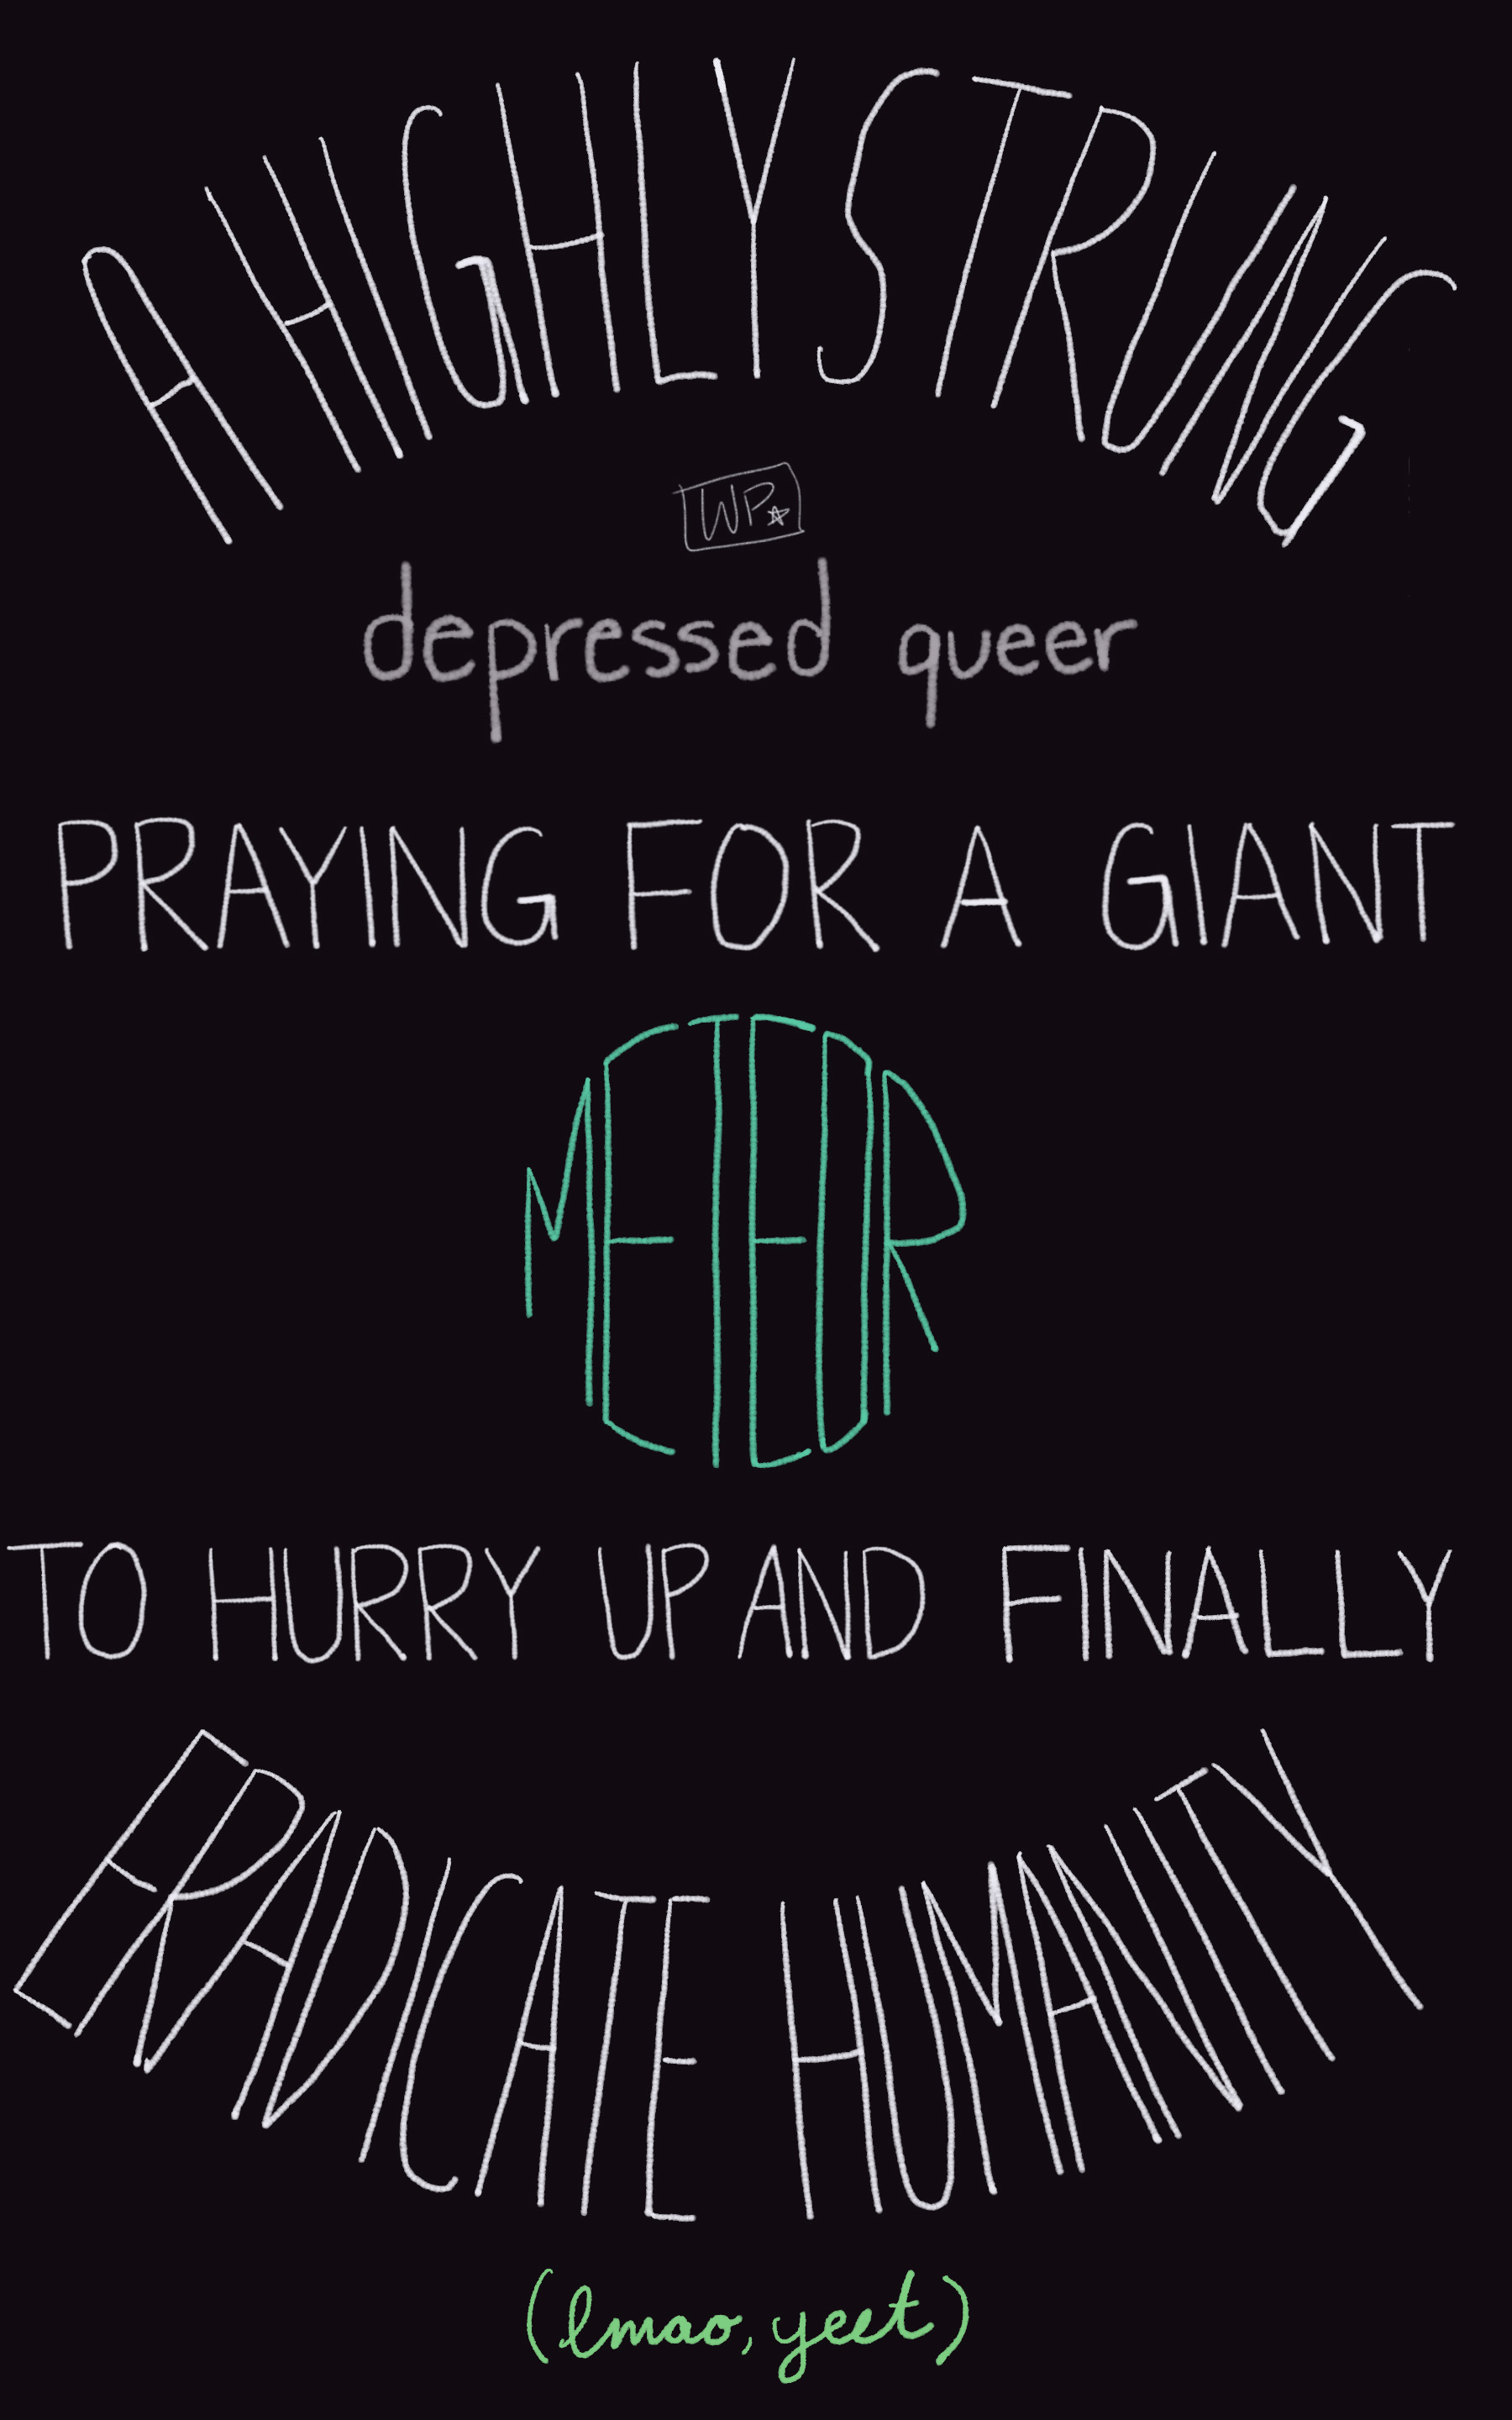 A HIGHLY STRUNG
WP
depressed queer
PRAYING FOR A GIANT
METEOR
TO HURRY UP AND FINALLY
ERADICATE HUMANITY
(lmao, yeet)